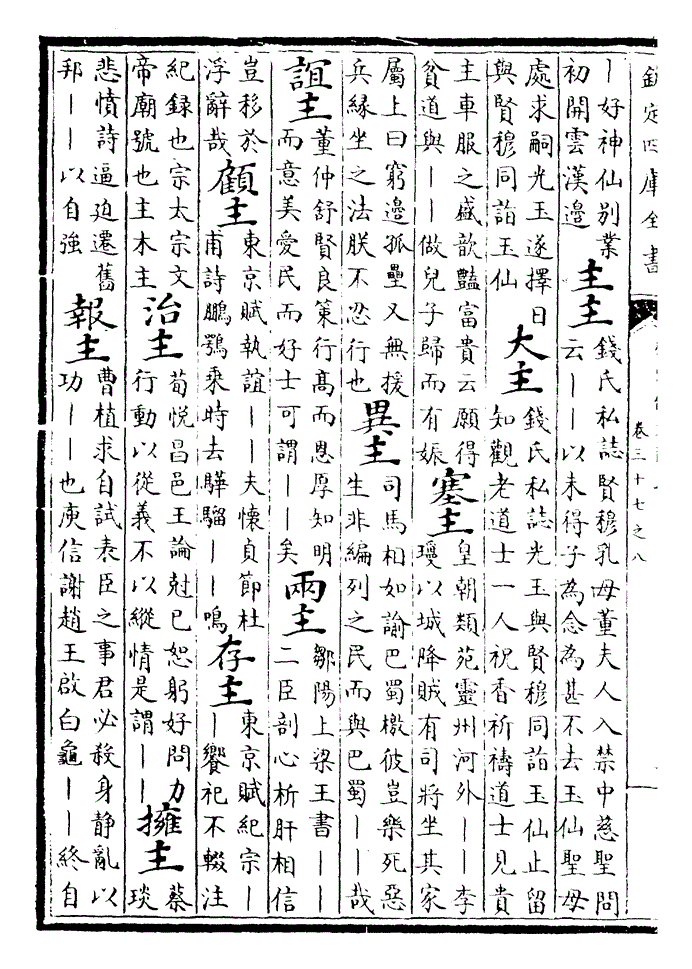 欽定四庫全書
卷三十七之八
｜好神仙別業
初開雲漢邊
主主
錢氏私誌賢穆乳母董夫人入禁中慈聖問
云｜｜以未得子為念為甚不去玉仙聖母
處求嗣光玉遂擇日
與賢穆同詣玉仙
大主
錢氏私誌光玉與賢穆同詣玉仙止留
知觀老道士一人祝香祈禱道士見貴
主車服之盛歆豔富貴云願得
貧道與｜｜做兒子歸而有娠
塞主
皇朝類苑靈州河外｜｜李
瓊以城降賊有司將坐其家
屬上曰窮邊孤壘又無援
兵緣坐之法朕不忍行也
異主
司馬相如諭巴蜀檄彼豈樂死惡
生非編列之民而與巴蜀｜｜哉
誼主
董仲舒賢良策行高而恩厚知明
而意美愛民而好士可謂｜｜矣
兩主
鄒陽上梁王書｜｜
二臣剖心析肝相信
豈移於
浮辭哉
顧主
東京賦執誼｜｜夫懷貞節杜
甫詩鵬鶚乘時去驊騮｜｜鳴
存主
東京賦紀宗｜
｜饗祀不輟注
紀録也宗太宗文
帝廟號也主木主
治主
荀悅昌邑王論尅已恕躬好問力
行動以從義不以縱情是謂｜｜
擁主
蔡
琰
悲憤詩逼迫遷舊
邦｜｜以自強
報主
曹植求自試表臣之事君必殺身静亂以
功｜｜也庾信謝趙王啟白龜｜｜終自